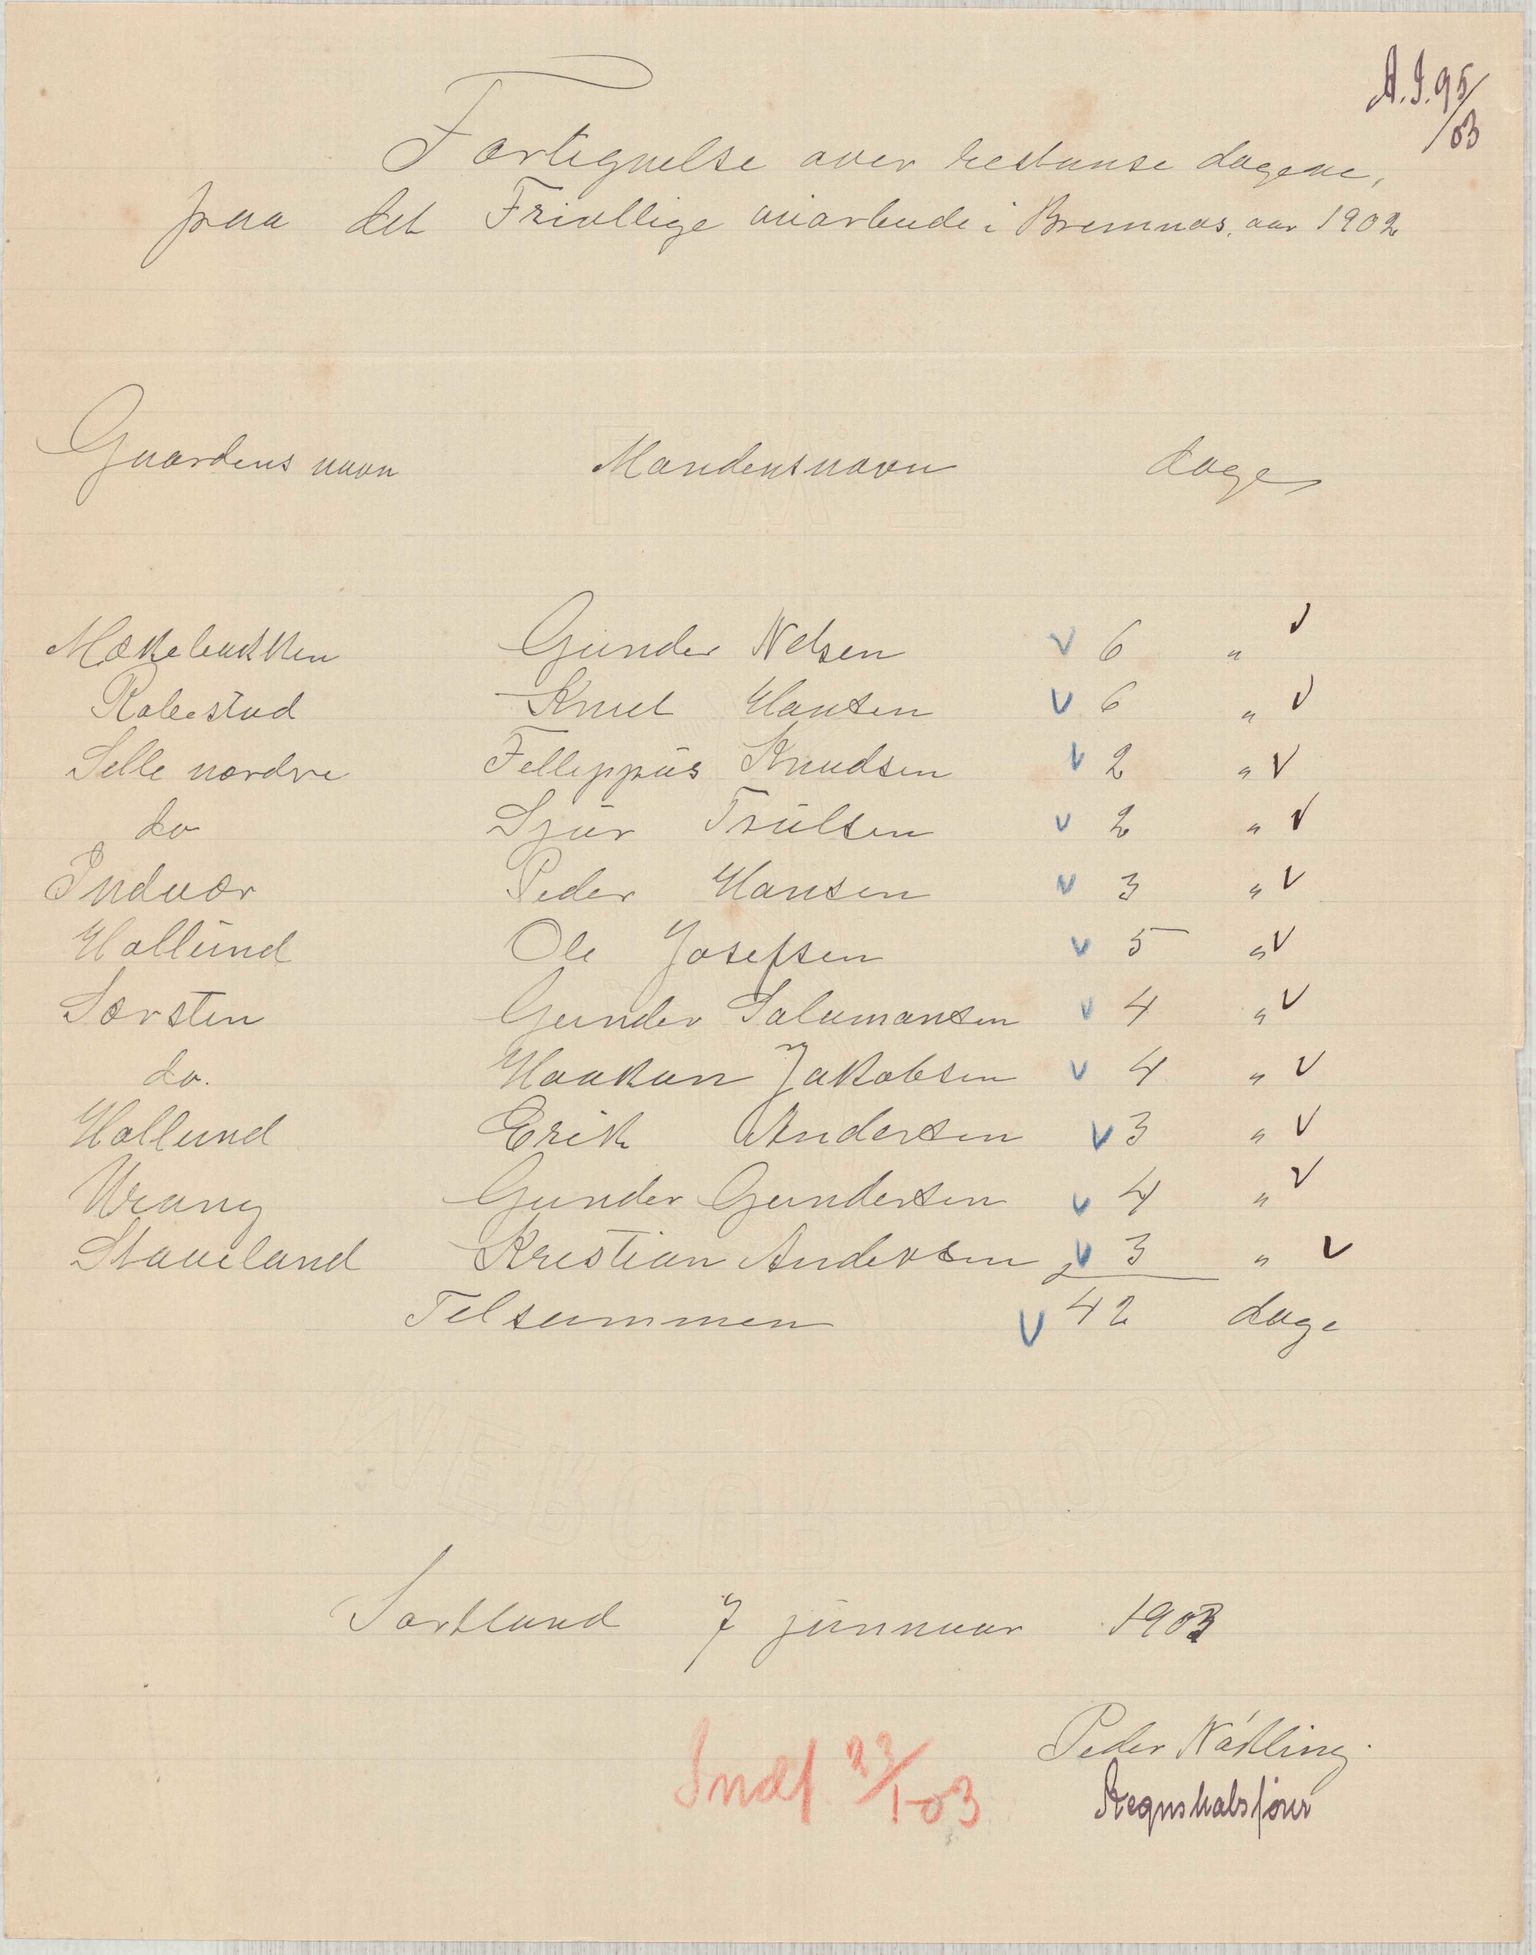 A.I.95/03
Fortegnelse over restanse dagene,
paa det Frivllige viarbeide i Bremnas, aar 1902
Gaardens navn Mandens navn dage
Mækebakken Gunder Nelsen v 6 " v
Robestad Knut Hansen v 6 " v
Selle nordre Felleppus Knudsen v 2 " v
do Sjur Trulsen v 2 " v
Indvær Peder Hansen v 3 " v
Hollund Ole Josefsen v 5 " v
Sørsten Gunder Salamansen v 4 " v
do. Haakan Jakobsen v 4 " v
Hollund Erik Andersen v 3 " v
Urang Gunder Gundersen v 4 " v
Staveland Krestian Andersen v 3 " v
Telsammen v 42 dage
Sortland 7 junnuar 1903
Indf 22/1-03 Peder
Regnskabsfører